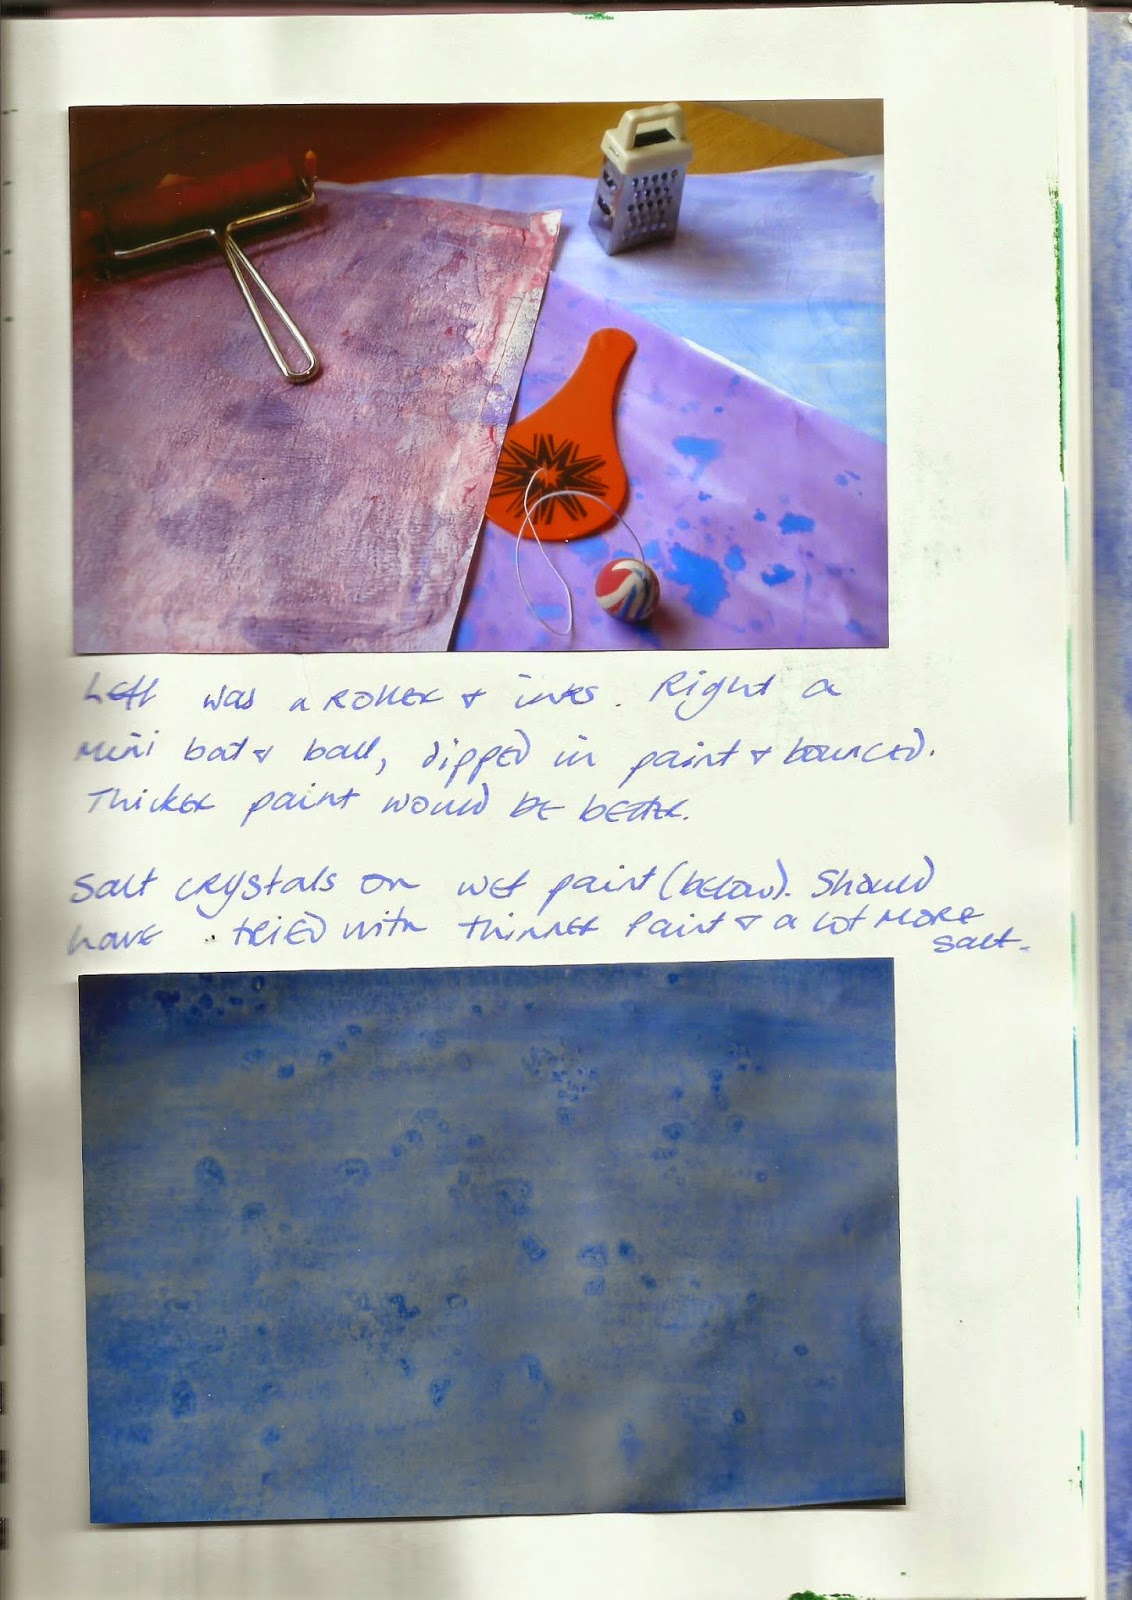 Left was a Roller & inks. Right a
Mini bat & ball, dipped in paint & bounced.
Thicker paint would be better.
Salt crystals on wet paint (below). Should
have tried with thinner paint & a lot more
salt.